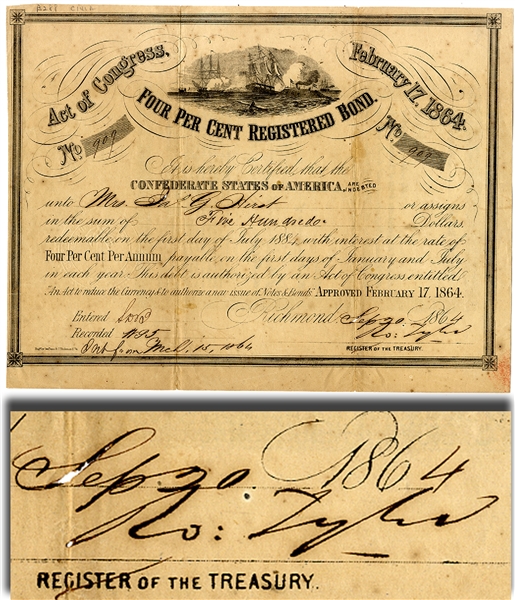 Act of Congress,
February 17, 1864.
FOUR PER CENT REGISTERED BOND.
No 909
No 909
It is hereby Certified that the
CONFEDERATE STATES OF AMERICA, ARE INDEBTED
unto Mrs. Jas G. or assigns
in the sum of Five Hundred Dollars
redeemable on the first day of July 1884, with interest at the rate of
Four Per Cent Per Annum payable, on the first days of January and July
in each year. This debt is authorized by an Act of Congress entitled
An Act to reduce the Currency & to authorize a new issue of Notes & Bonds. APPROVED FEBRUARY 17, 1864.
Entered
Richmond Sep 20. 1864
Recorded
Ro: Tyler
Int from 1864
REGISTER OF THE TREASURY.
Sep 20. 1864
Ro: Tyler
REGISTER OF THE TREASURY.